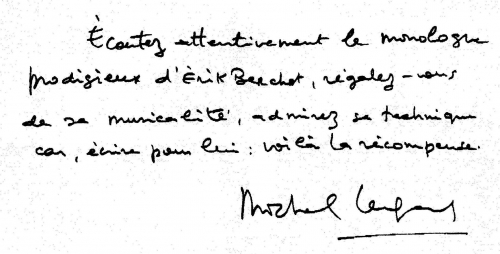 Écoutez attentivement le monologue
prodigieux d'Érik Berchot, régalez-vous
de sa musicalité, admirez sa technique
car, écrire pour lui : voilà la récompense.
Michel Legrand